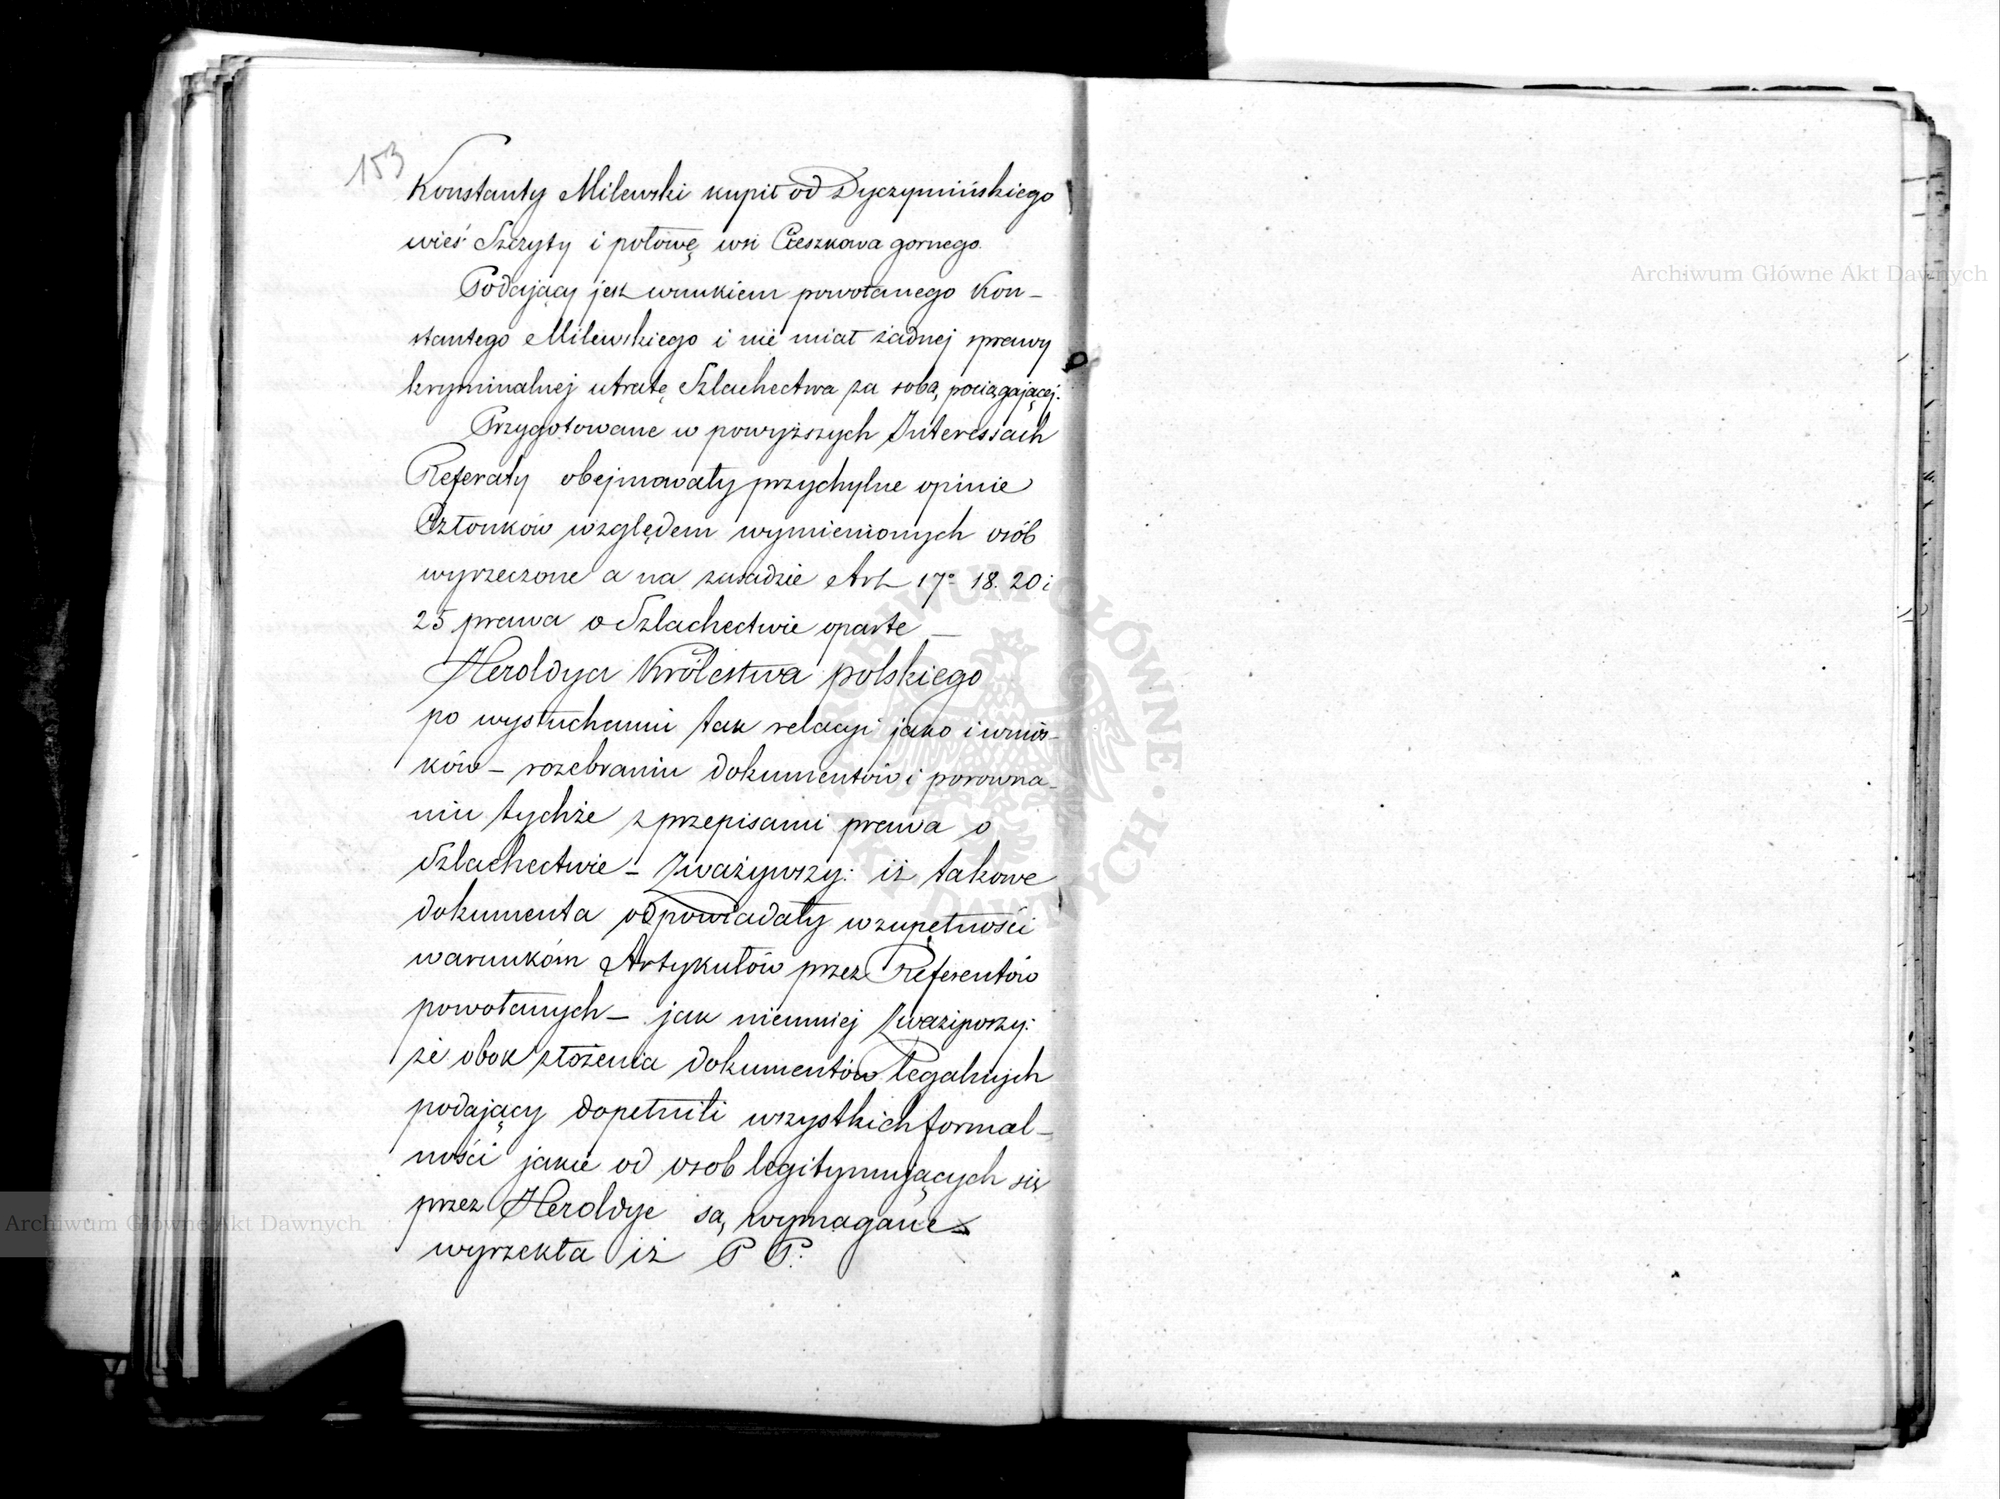 153
Konstanty Milewski kupił od Dyczymińskiego
wieś Szczyty i połowę wsi Cieszkowa gornego.
Podający jest wnukiem powołanego Kon-
stantego Milewskiego i nie miał żadnej sprawy
kryminalnej utratę Szlachectwa za sobą pociągającej.
Przygotowane w powyższych Interessach
Referaty obejmowały przychylne opinie
Członków względem wymienionych osób
wyrzeczone a na zasadzie Art 17º 18. 20 i
25 prawa o Szlachectwie oparte —
Heroldya Królestwa polskiego
po wysłuchaniu tak relacyi jako i wnios-
ków – rozebraniu dokumentów i porowna-
niu tychże z przepisami prawa o
Szlachectwie – Zważywszy: iż takowe
dokumenta odpowiadały w zupełności
warunkóm Artykułów przez Referentów
powołanych – jak niemniej
że obok złożenia dokumentów legalnych
podający dopełnili wszystkich formal-
ności jakie od osob legitymujących się
przez Heroldye są wymagane
wyrzekła iż P P.
Archiwum Główne Akt Dawnych
Archiwum Główne Akt Dawnych
ARCHIWUM GŁÓWNE · AKT DAWNYCH ·